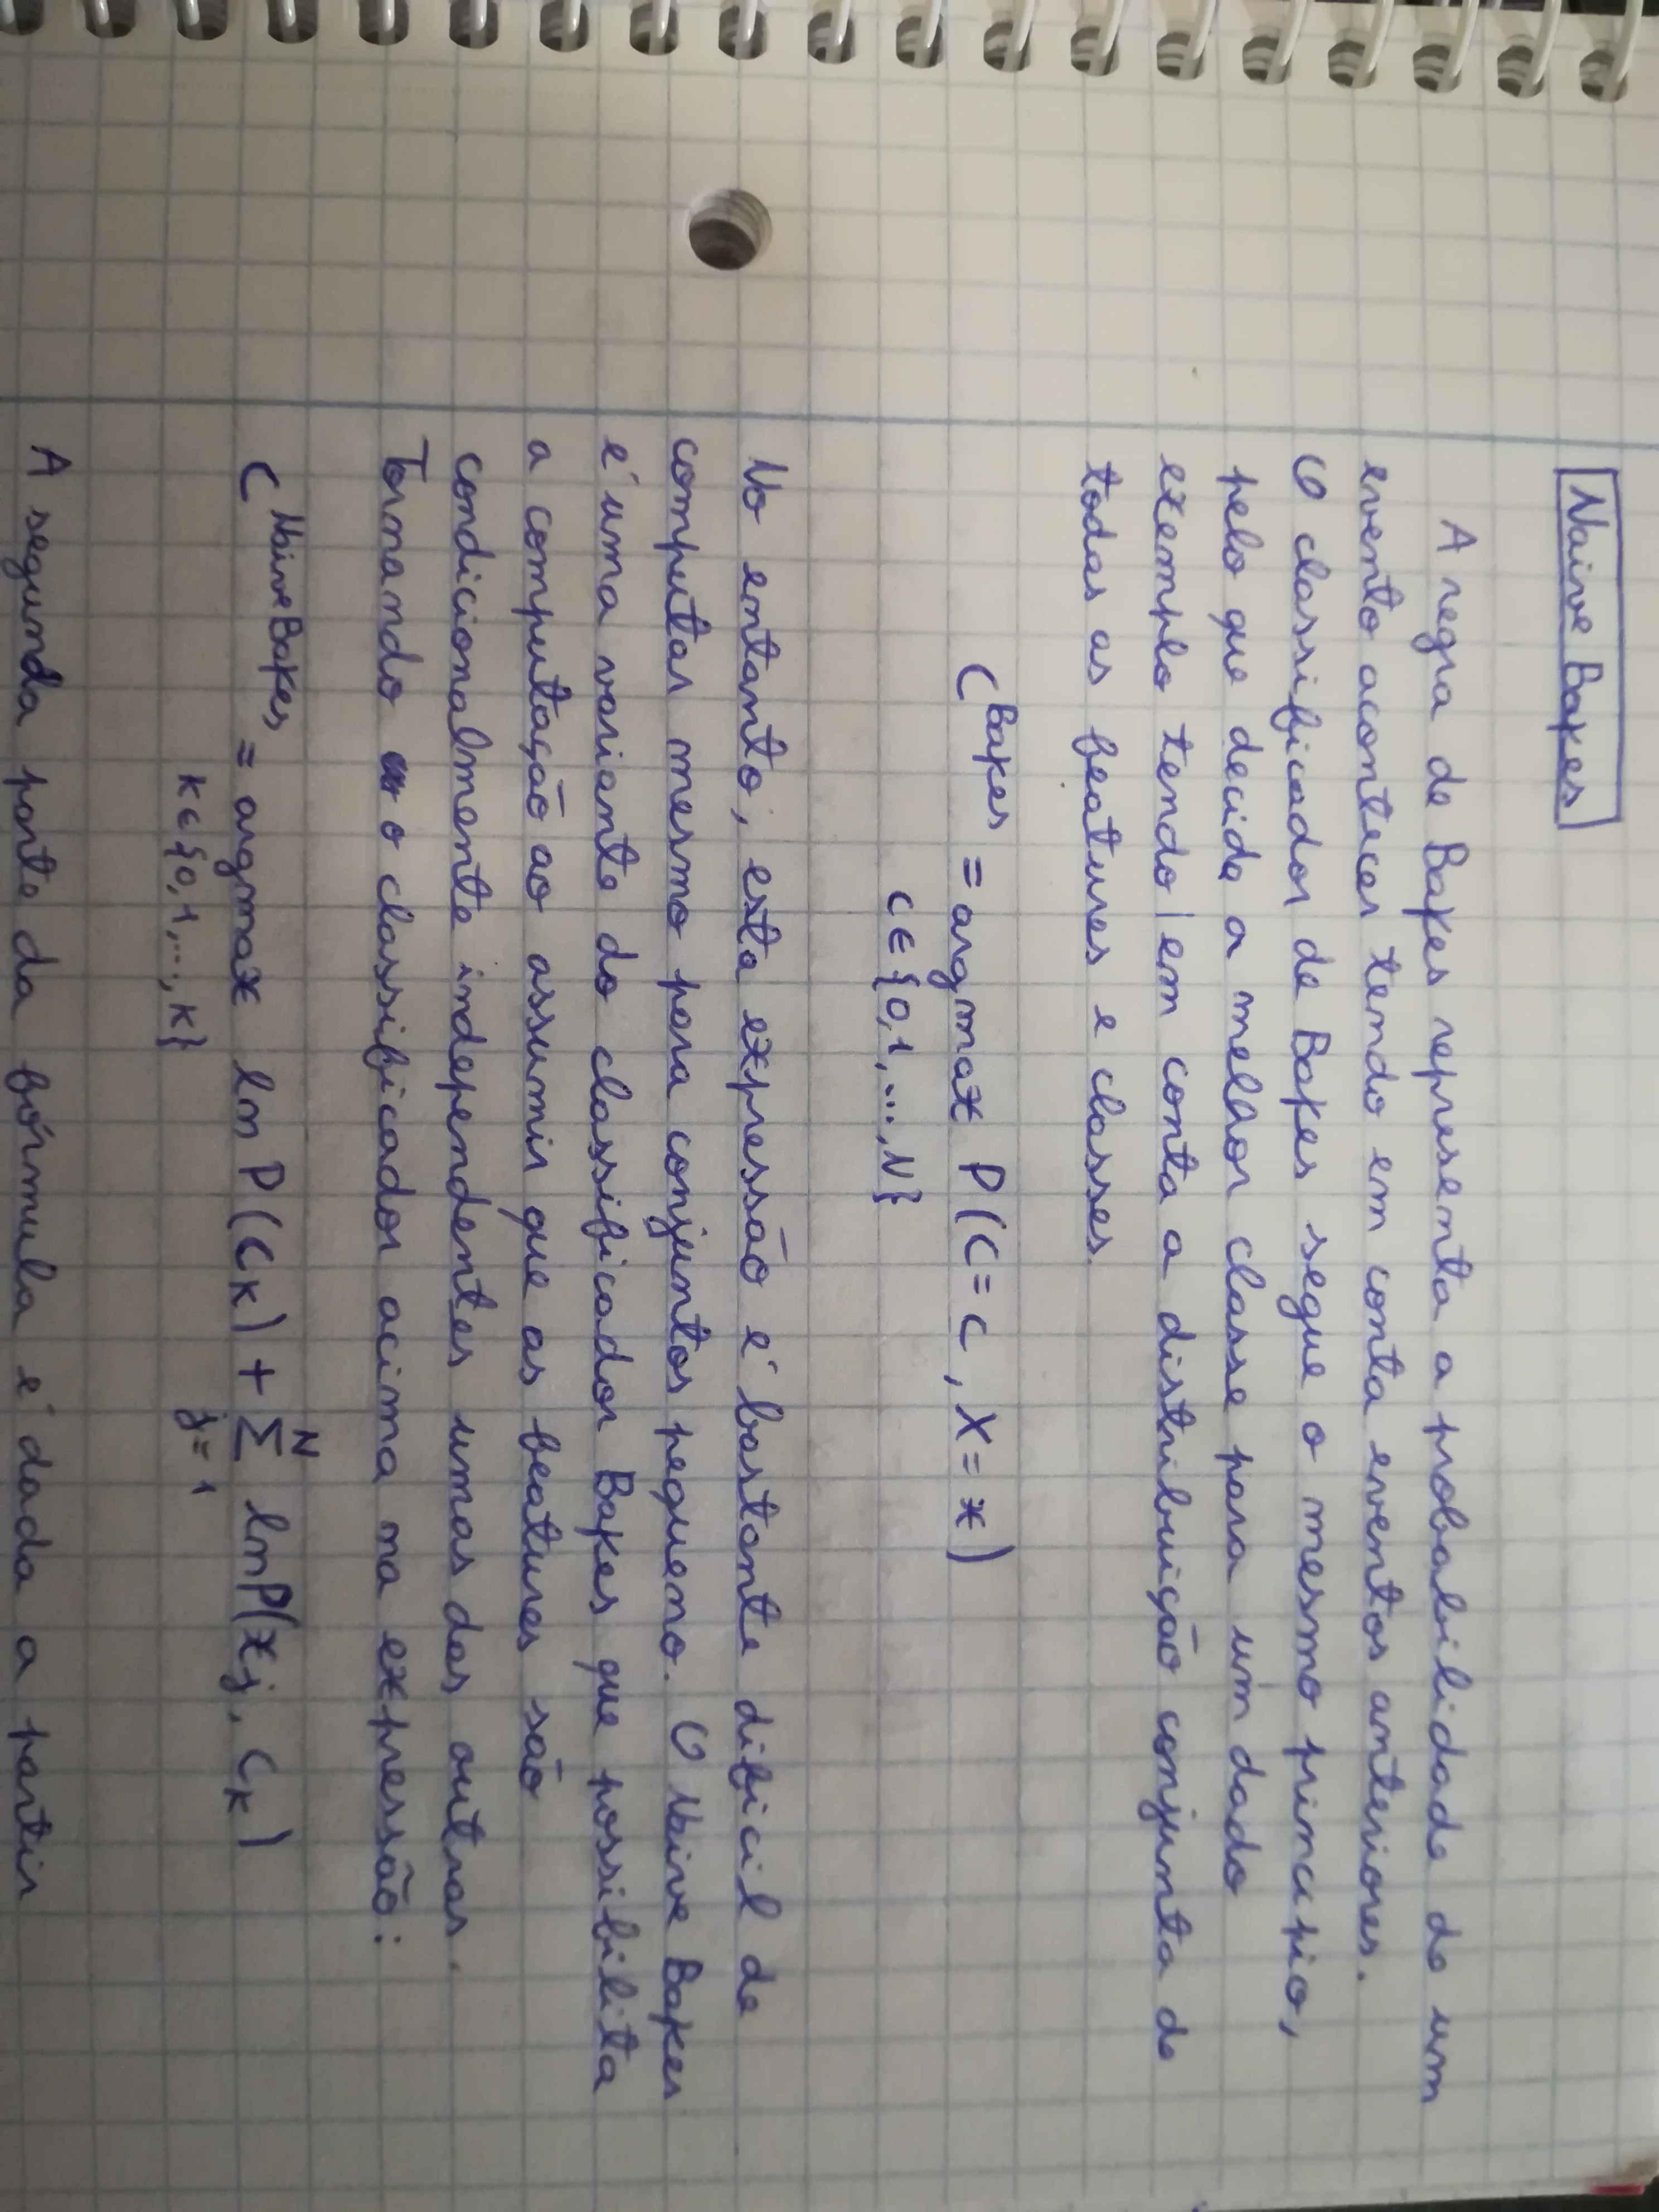 Naive Bayes
A regra de Bayes representa a probabilidade de um
evento acontecer tendo em conta eventos anteriores.
O classificador de Bayes segue o mesmo principio,
pelo que decide a melhor classe para um dado
exemplo tendo em conta a distribuição conjunta de
todas as features e classes.
C^Bayes = argmax P(C=c, X=x)
c∈{0,1,...,N}
No entanto, esta expressão é bastante dificil de
computar mesmo para conjuntos pequeno. O Naive Bayes
é uma variante do classificador Bayes que possibilita
a computação ao assumir que as features são
condicionalmente independentes umas das outras.
Tornando o classificador acima na expressão:
C^NaiveBayes = argmax ln P(C_K) + Σ ln P(x_j, C_K)
K∈{0,1,...,K} j=1 N
A segunda parte da fórmula é dada a partir